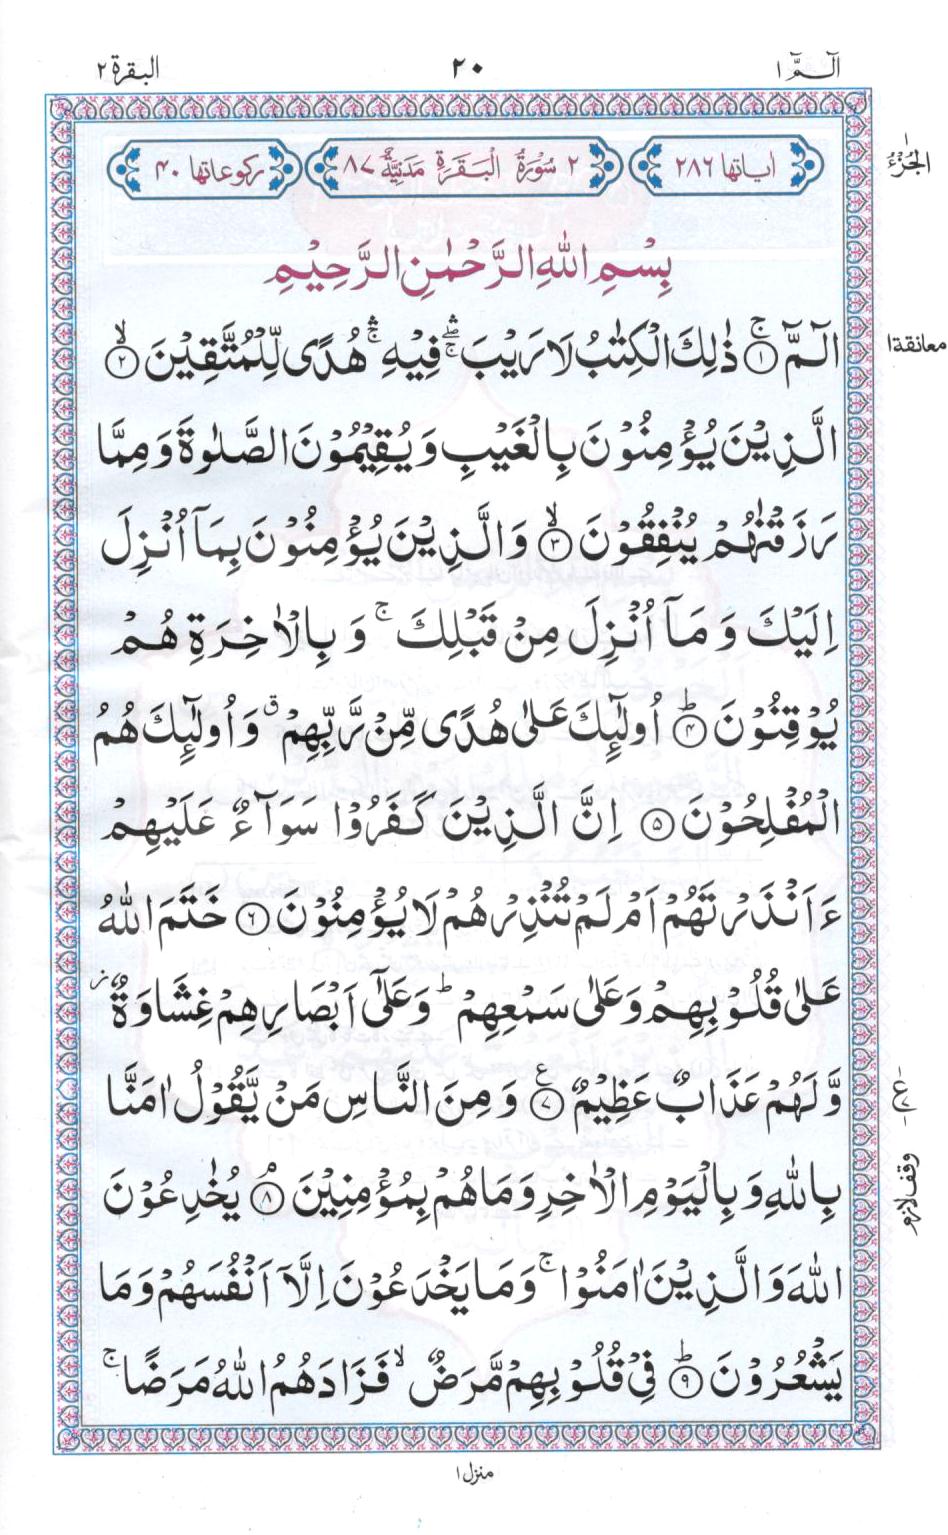 الٓـمّٓ ١
٢٠
البقرة ٢
الجزء ١
اٰیاتها ٢٨٦
٢ سُوْرَةُ الْبَقَرَةِ مَدَنِيَّةٌ ٨٧
رکوعاتها ۴٠
بِسْمِ اللّٰهِ الرَّحْمٰنِ الرَّحِيْمِ
الٓمّٓ ۚ﴿١﴾ ذٰلِكَ الْكِتٰبُ لَا رَيْبَ ۛۖۚ فِيْهِ ۛۚ هُدًى لِّلْمُتَّقِيْنَ ۙ﴿٢﴾
معانقة ١
الَّذِيْنَ يُؤْمِنُوْنَ بِالْغَيْبِ وَيُقِيْمُوْنَ الصَّلٰوةَ وَمِمَّا
رَزَقْنٰهُمْ يُنْفِقُوْنَ ۙ﴿٣﴾ وَالَّذِيْنَ يُؤْمِنُوْنَ بِمَآ اُنْزِلَ
اِلَيْكَ وَمَآ اُنْزِلَ مِنْ قَبْلِكَ ۚ وَبِالْاٰخِرَةِ هُمْ
يُوْقِنُوْنَ ؕ﴿۴﴾ اُولٰٓئِكَ عَلٰى هُدًى مِّنْ رَّبِّهِمْ ۗ وَاُولٰٓئِكَ هُمُ
الْمُفْلِحُوْنَ ﴿۵﴾ اِنَّ الَّذِيْنَ كَفَرُوْا سَوَآءٌ عَلَيْهِمْ
ءَاَنْذَرْتَهُمْ اَمْ لَمْ تُنْذِرْهُمْ لَا يُؤْمِنُوْنَ ﴿٦﴾ خَتَمَ اللّٰهُ
عَلٰى قُلُوْبِهِمْ وَعَلٰى سَمْعِهِمْ ؕ وَعَلٰٓى اَبْصَارِهِمْ غِشَاوَةٌ ز
وَّلَهُمْ عَذَابٌ عَظِيْمٌ ﴿٧﴾ ع وَمِنَ النَّاسِ مَنْ يَّقُوْلُ اٰمَنَّا
بِاللّٰهِ وَبِالْيَوْمِ الْاٰخِرِ وَمَا هُمْ بِمُؤْمِنِيْنَ ۘ﴿٨﴾ يُخٰدِعُوْنَ
وقف لازم
اللّٰهَ وَالَّذِيْنَ اٰمَنُوْا ۚ وَمَا يَخْدَعُوْنَ اِلَّآ اَنْفُسَهُمْ وَمَا
يَشْعُرُوْنَ ؕ﴿٩﴾ فِيْ قُلُوْبِهِمْ مَّرَضٌ ۙ فَزَادَهُمُ اللّٰهُ مَرَضًا ۚ
منزل ١